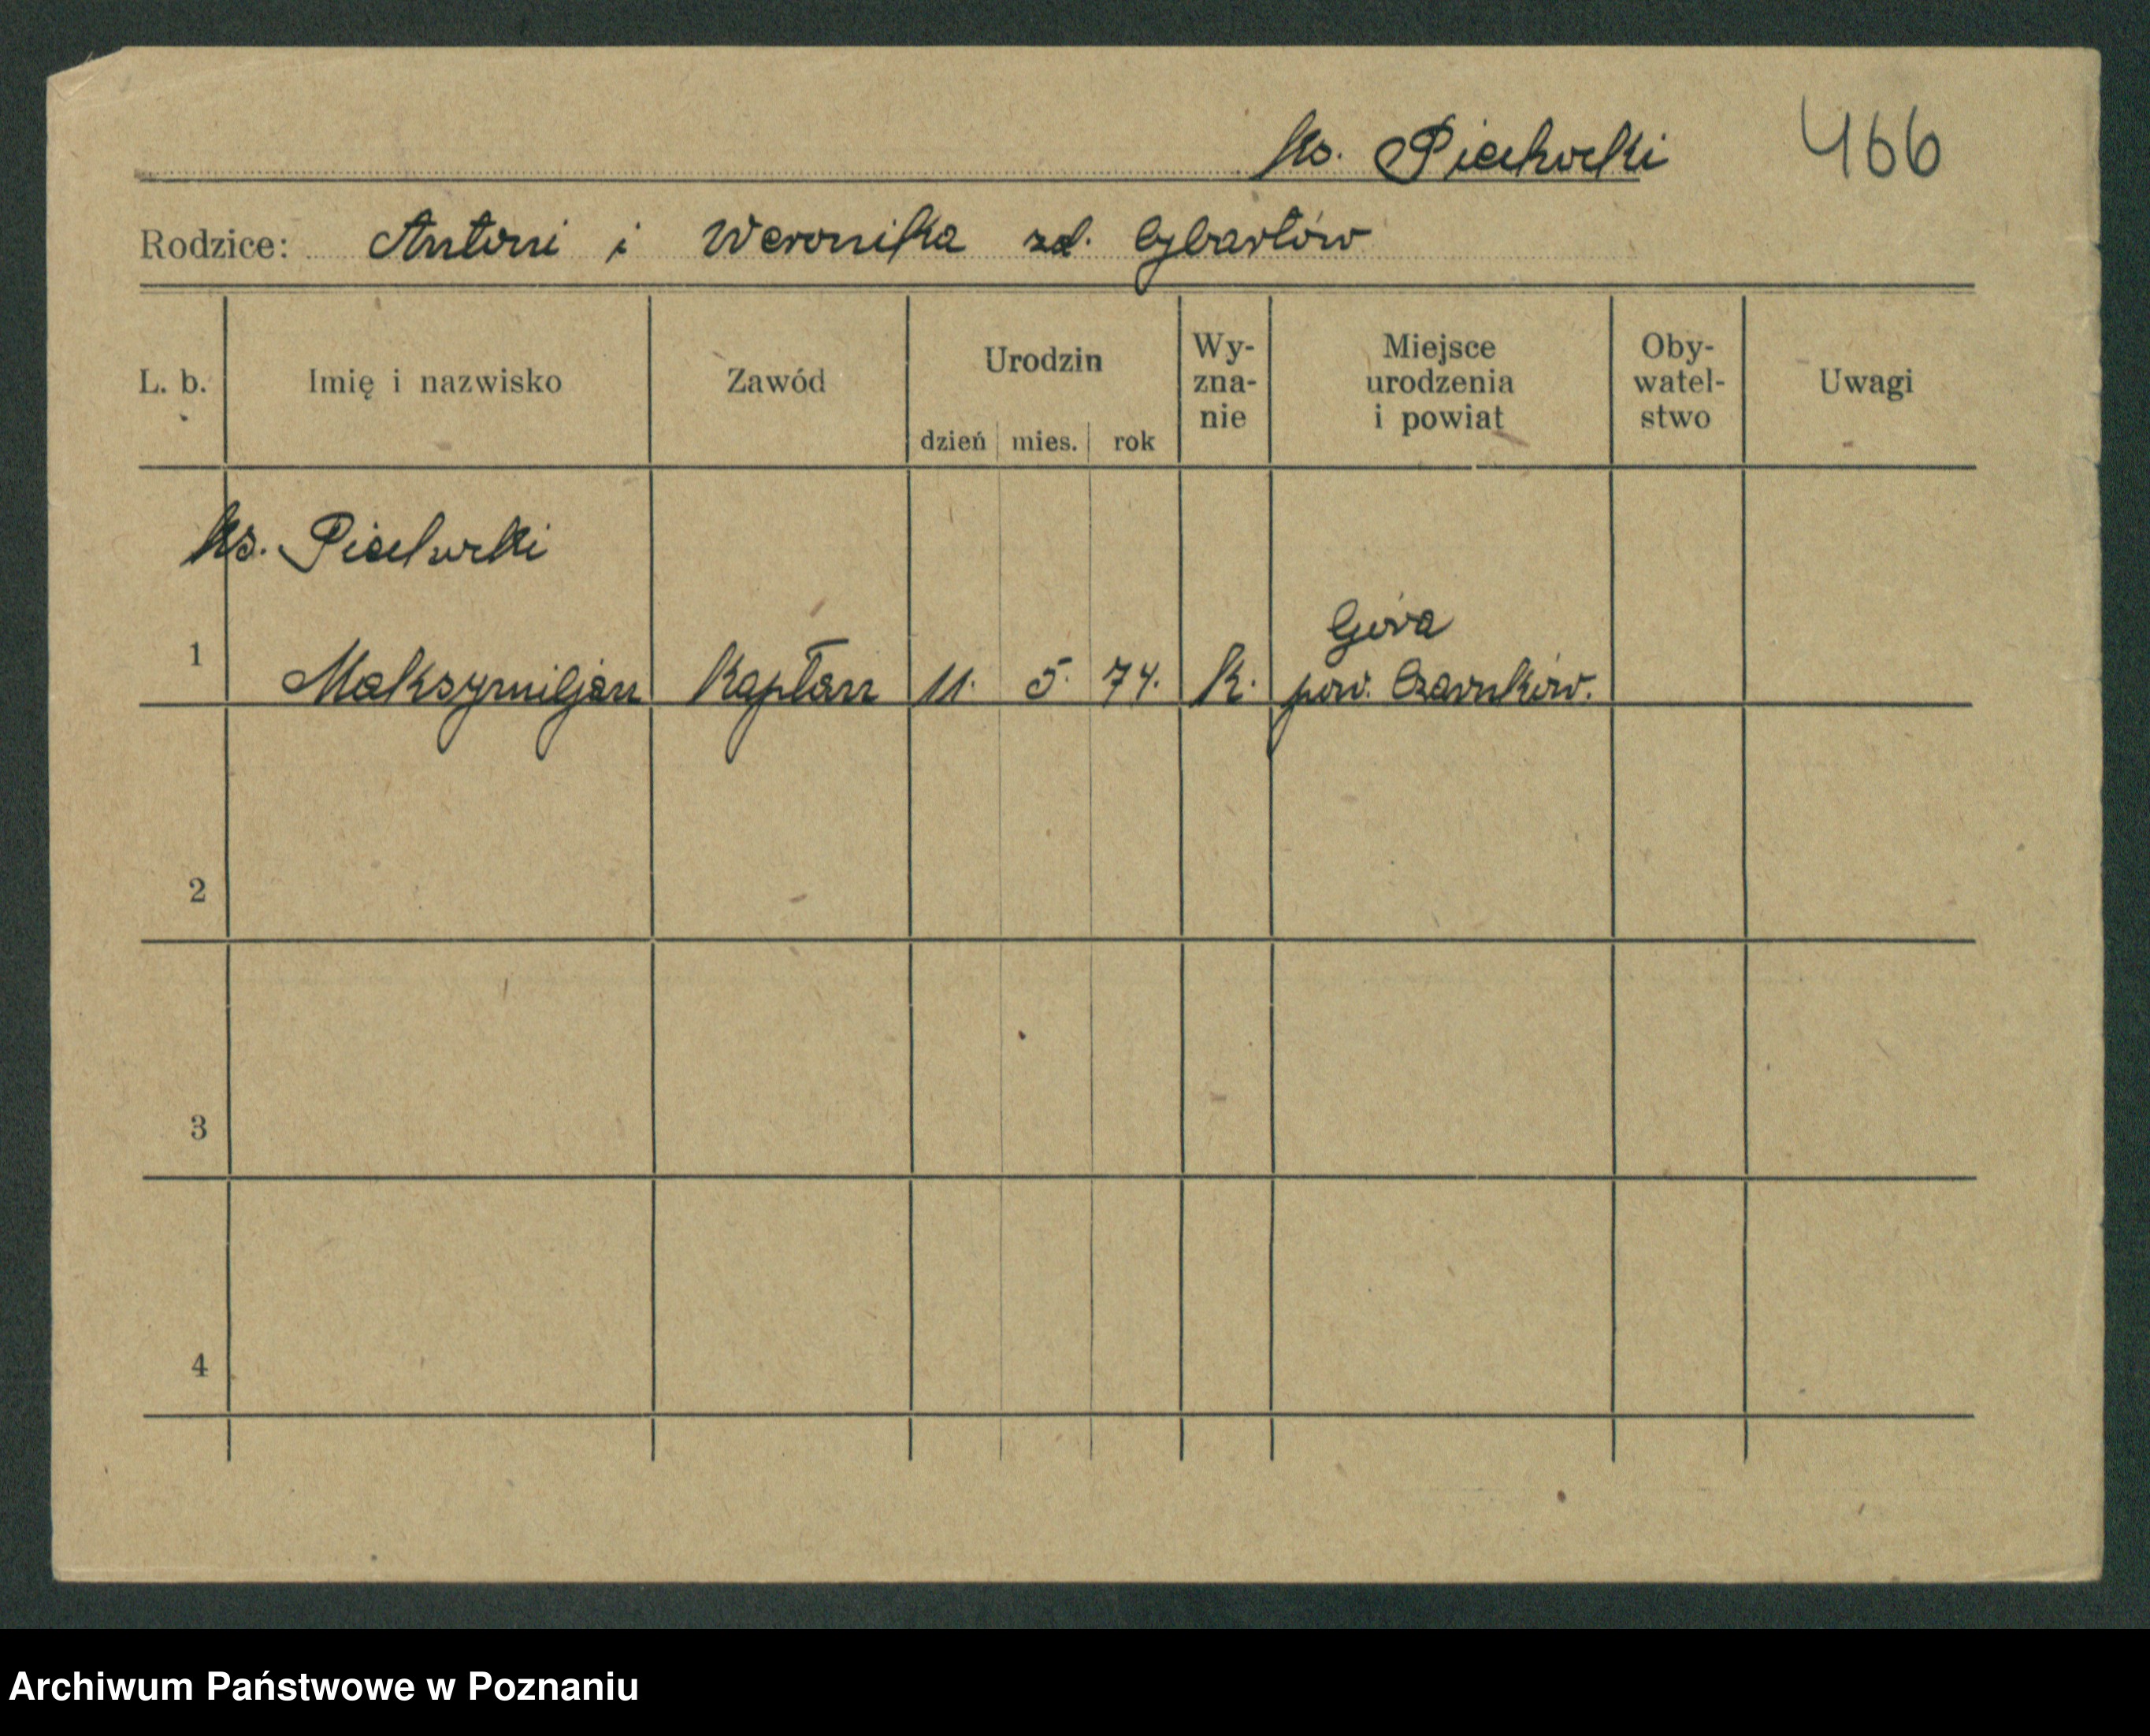 ks. Piechocki 466
Rodzice: Antoni i Weronika zd.
L. b. Imię i nazwisko Zawód Urodzin dzień mies. rok Wy-zna-nie Miejsce urodzenia i powiat Oby-watel-stwo Uwagi
ks. Piechocki
Góra
1 Maksymiljan Kapłan 11. 5. 74. K. pow. Czarnków.
2
3
4
Archiwum Państwowe w Poznaniu